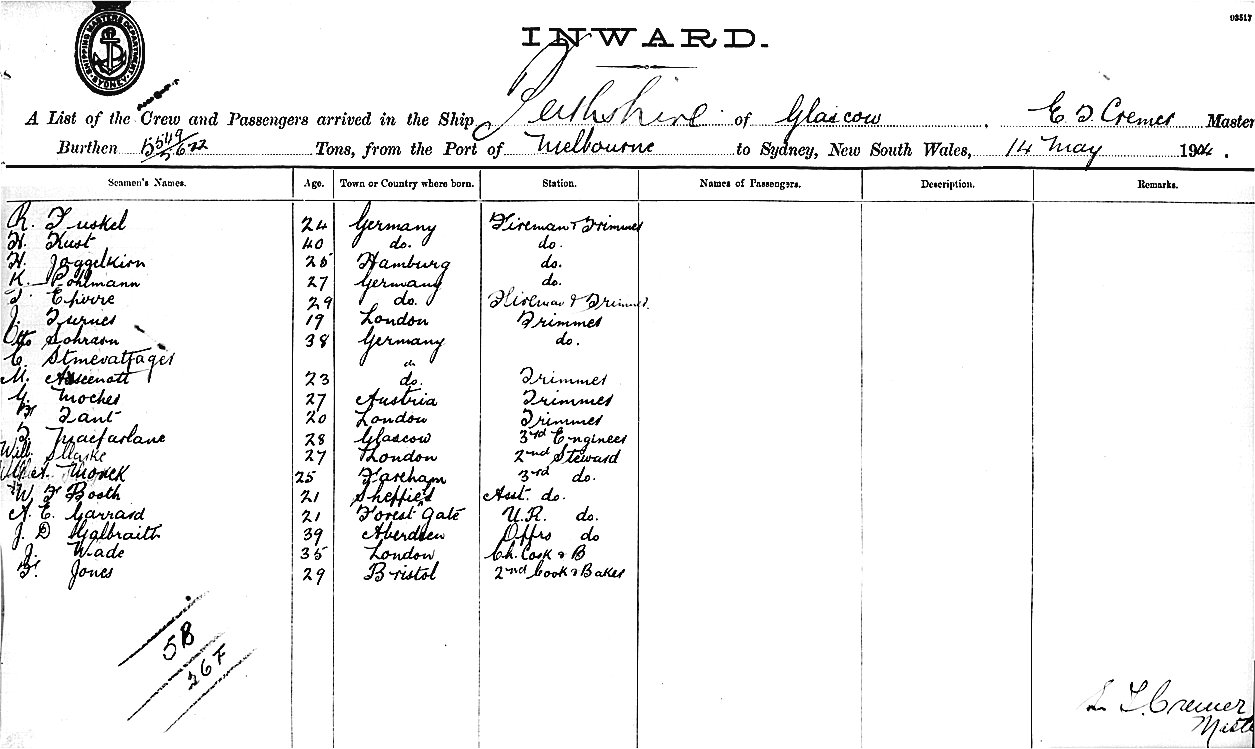 03517
SHIPPING MASTERS DEPARTMENT SYDNEY
INWARD.
A List of the Crew and Passengers arrived in the Ship Perthshire of Glascow. E T Cremer Master
Burthen 5549/5622 Tons, from the Port of Melbourne to Sydney, New South Wales, 14 May 190
Seamen's Names. Age. Town or Country where born. Station. Names of Passengers. Description. Remarks.
R. Fuskel 24 Germany Fireman & Trimmer
H. Kust 40 do. do.
H. Jaggelkirn Hamburg do.
K. Pohlmann 27 Germany do.
29 do. Fireman & Trimmer
J. Turner 19 London Trimmer
Otto 38 Germany do.
do
M. 23 do. Trimmer
G. Mocher 27 Austria Trimmer
Tant 20 London Trimmer
Macfarlane 28 Glascow 3rd Engineer
Will. 27 London 2nd Steward
Monck 25 Fareham 3rd do.
W F Booth 21 Sheffield Asst. do.
A. E. Garrard 21 Forest Gate U.R. do.
J. D Galbraith 39 Aberdeen Offrs do
J. Wade 35 London Ch. Cook & B
Jones 29 Bristol 2nd Cook & Baker
5B
26F
T. Cremer